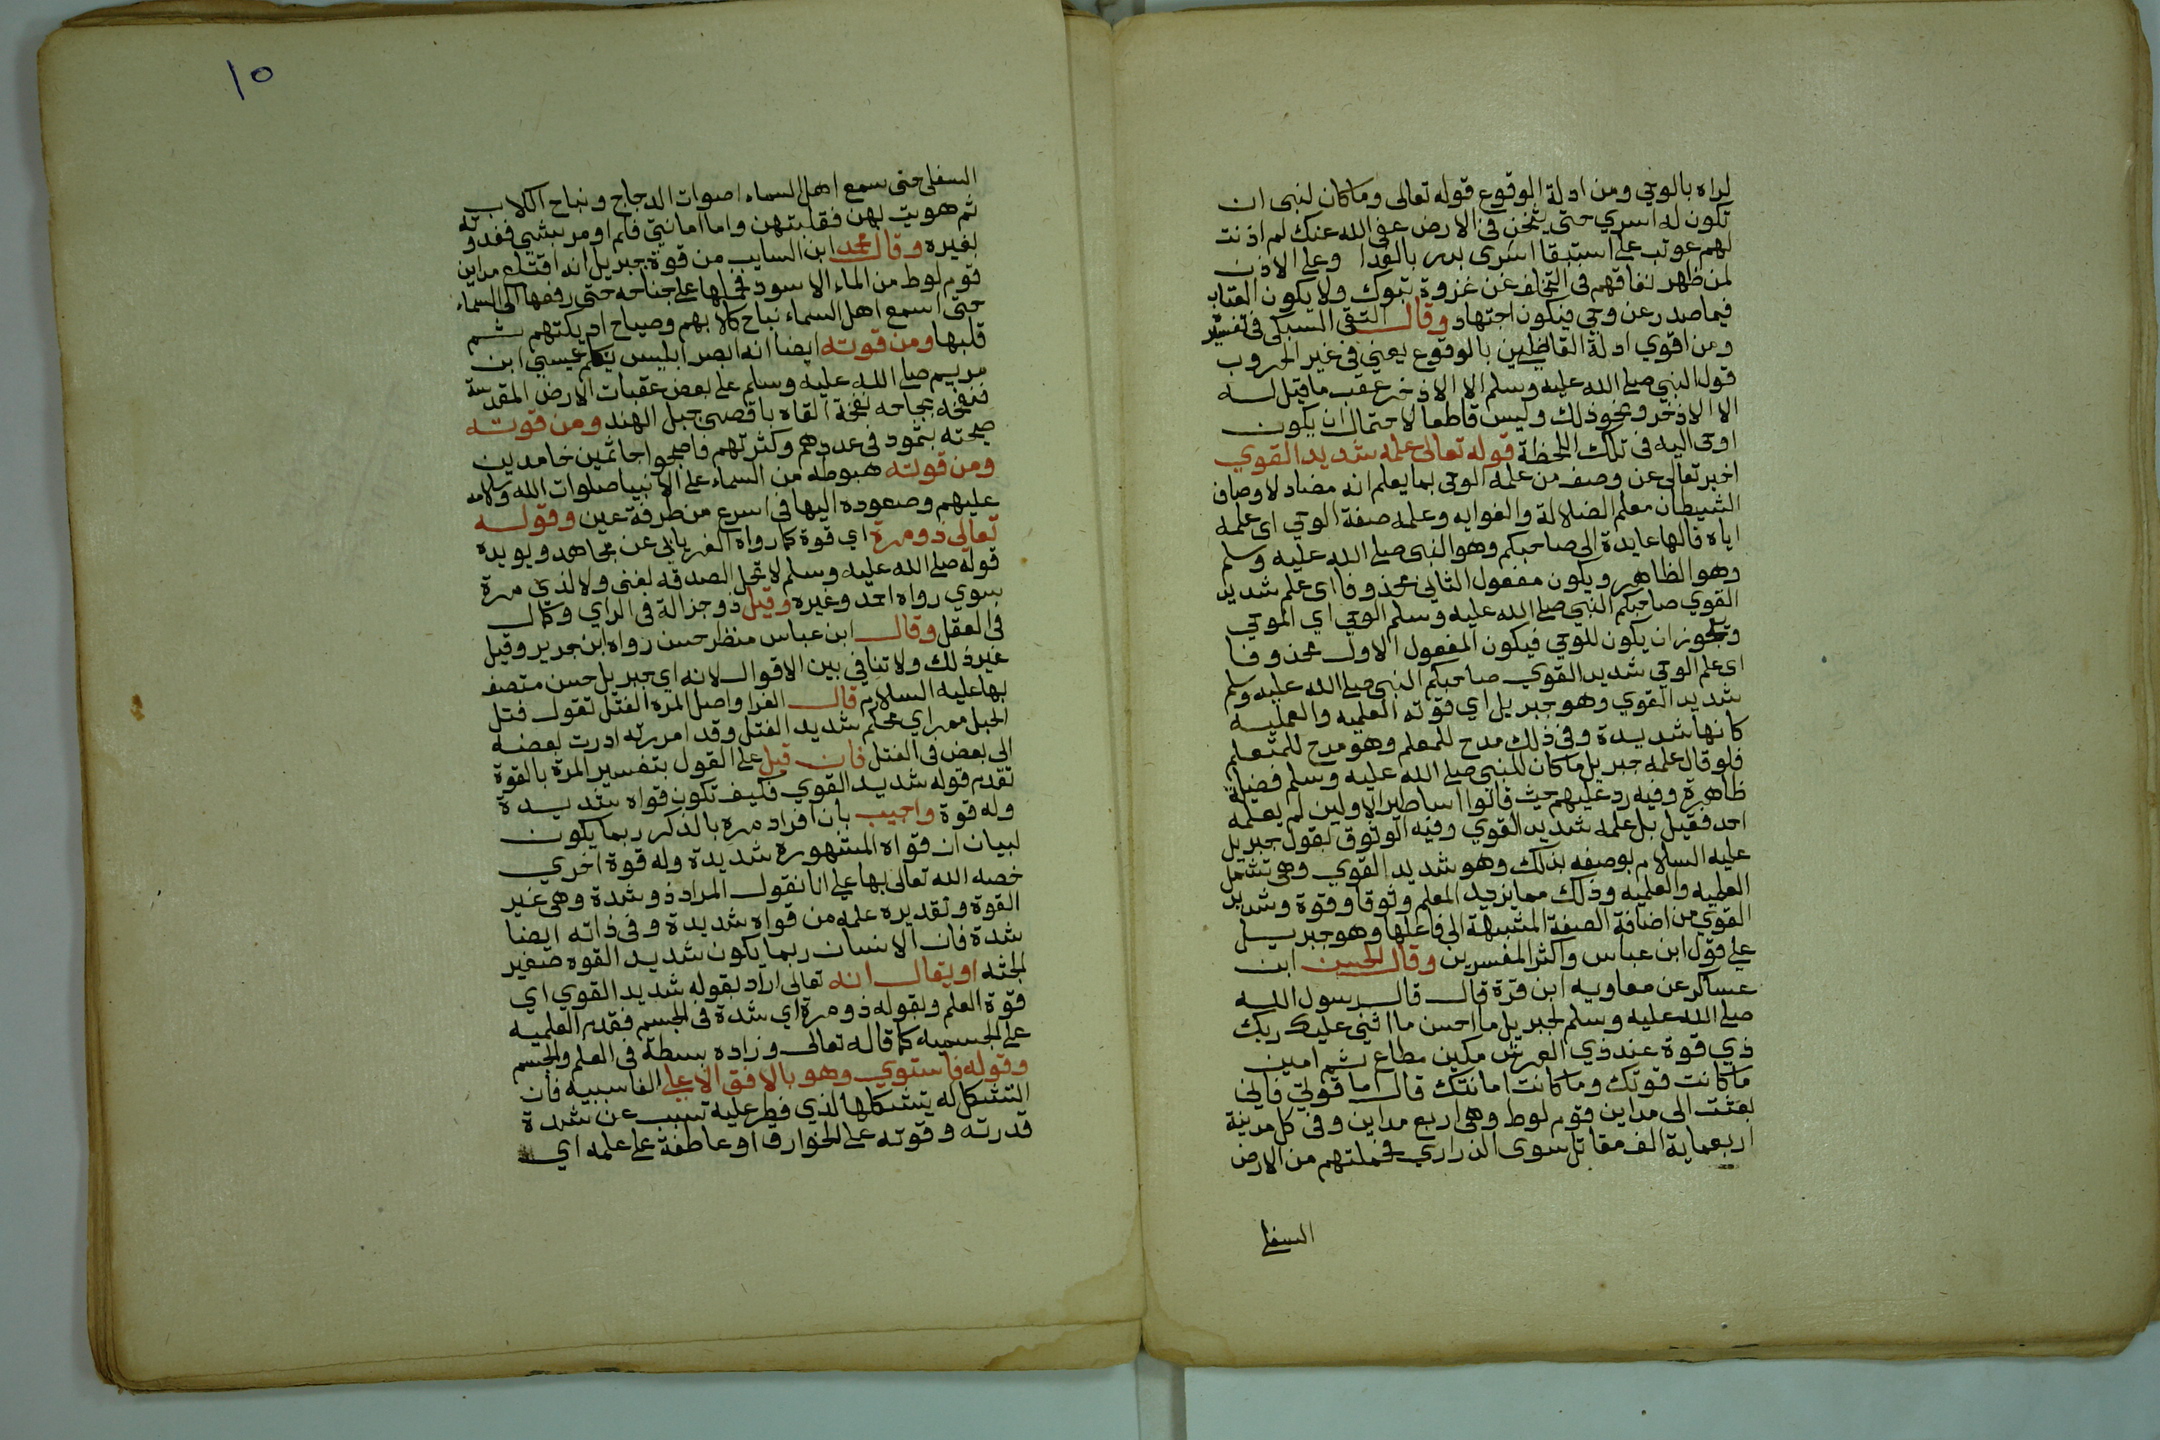 لراه بالوحي ومن ادلة الوقوع قوله تعالى وما كان لنبى ان
تكون له اسري حتى يثخن في الارض عفى الله عنك لم اذنت
لهم عوتب على استبقا اسرى بدر بالفدا وعلى الاذن
لمن ظهر نفاقهم في التخلف عن غزوة تبوك ولا يكون العتاب
فيما صدر عن وحي فيكون اجتهاد وقال التقي السبكى في تفسير
ومن اقوي ادلة القايلين بالوقوع يعني في غير الحروب
قول النبي صلى الله عليه وسلم الا الاذخر عقب ما قيل له
الا الاذخر ونحو ذلك وليس قاطعا لاحتمال ان يكون
اوحى اليه في تلك اللحظة قوله تعالى علمه شديد القوي
اخبر تعالى عن وصف من علمه الوحي بما يعلم انه مضاد لاوصاف
الشيطان معلم الضلالة والغوايه وعلمه صفة الوحي اي علمه
اياه فالها عايدة الى صاحبكم وهو النبي صلى الله عليه وسلم
وهو الظاهر ويكون مفعول الثاني محذوفا اى علم شديد
القوي صاحبكم النبي صلى الله عليه وسلم الوحي اي الموحي
ويجوز ان يكون للوحي فيكون المفعول الاول محذوفا
اى علم الوحي شديد القوي صاحبكم النبي صلى الله عليه وسلم
شديد القوي وهو جبريل اي قوته العلميه والعمليه
كانها شديدة وفي ذلك مدح للمعلم وهو مدح للمتعلم
فلو قال علمه جبريل ما كان للنبي صلى الله عليه وسلم فضيلة
ظاهرة وفيه رد عليهم حيث قالوا اساطير الاولين لم يعلمه
احد فقيل بل علمه شديد القوي وفيه الوثوق لقول جبريل
عليه السلام بوصفه بذلك وهو شديد القوي وهي تشمل
العلميه والعلميه وذلك مما يزيد المعلم وثوقا وقوة وشديد
القوي من اضافة الصفة المشبهة الى فاعلها وهو جبريل
على قول ابن عباس واكثر المفسرين وقال الحسن ابن
عساكر عن معاويه ابن قرة قال قال رسول الله
صلى الله عليه وسلم لجبريل ما احسن ما اثنى عليك ربك
ذي قوة عند ذي العرش مكين مطاع ثم امين
ما كانت قوتك وما كانت امانتك قال اما قوتي فاني
بعثت الى مداين قوم لوط وهى اربع مداين وفي كل مدينة
اربعماية الف مقاتل سوى الذراري فحملتهم من الارض
السفلى
١٥
السفلى حتى سمع اهل السماء اصوات الدجاج ونباح الكلاب
ثم هويت بهن فقلبتهن واما امانتي فلم اومر بشي فعدوته
لغيره وقال محمد ابن السايب من قوة جبريل انه اقتلع مداين
قوم لوط من الماء الاسود فحملها على جناحه حتى رفعها الى السماء
حتى اسمع اهل السماء نباح كلابهم وصياح اديكتهم ثم
قلبها ومن قوته ايضا انه ابصر ابليس يكلم عيسى ابن
مريم صلى الله عليه وسلم على بعض عقبات الارض المقدسة
فنفخه بجناحه نفخة القاه باقصى جبل الهند ومن قوته
صيحته بثمود في عددهم وكثرتهم فاصبحوا جاثمين خامدين
ومن قوته هبوطه من السماء على الانبيا صلوات الله وسلامه
عليهم وصعوده اليها في اسرع من طرفة عين وقوله
تعالى ذو مرة اي قوة كما رواه الفريابي عن مجاهد ويويده
قوله صلى الله عليه وسلم لا تحل الصدقه لغنى ولا لذي مرة
سوي رواه احمد وغيره وقيل ذو جزالة في الراي وكمال
في العقل وقال ابن عباس منظر حسن رواه ابن جرير وقيل
غير ذلك ولا تنافي بين الاقوال لانه اي جبريل حسن متصف
بها عليه السلام قال الفرا واصل المره الفتل تقول فتل
الحبل ممر اي محكم شديد الفتل وقد امررته ادرت بعضه
الى بعض في الفتل فان قيل على القول بتفسير المرة بالقوة
تقدم قوله شديد القوي فكيف تكون قواه شديدة
وله قوة واجيب بان افراد مره بالذكر ربما يكون
لبيان ان قواه المشهورة شديدة وله قوة اخري
خصه الله تعالى بها على انا نقول المراد ذو شدة وهى غير
القوة وتقديره علمه من قواه شديدة وفي ذاته ايضا
شدة فان الانسان ربما يكون شديد القوه صغير
الجثه او يقال انه تعالى اراد بقوله شديد القوي اي
قوة العلم وبقوله ذو مرة اي شدة في الجسم فقدم العلميه
على الجسميه كما قاله تعالى وزاده بسطة في العلم والجسم
وقوله فاستوي وهو بالافق الاعلى الفا سببيه فان
التشكل له يتشكلها الذي فطر عليه تسبب عن شدة
قدرته وقوته على الخوارق او عاطفة على علمه اي